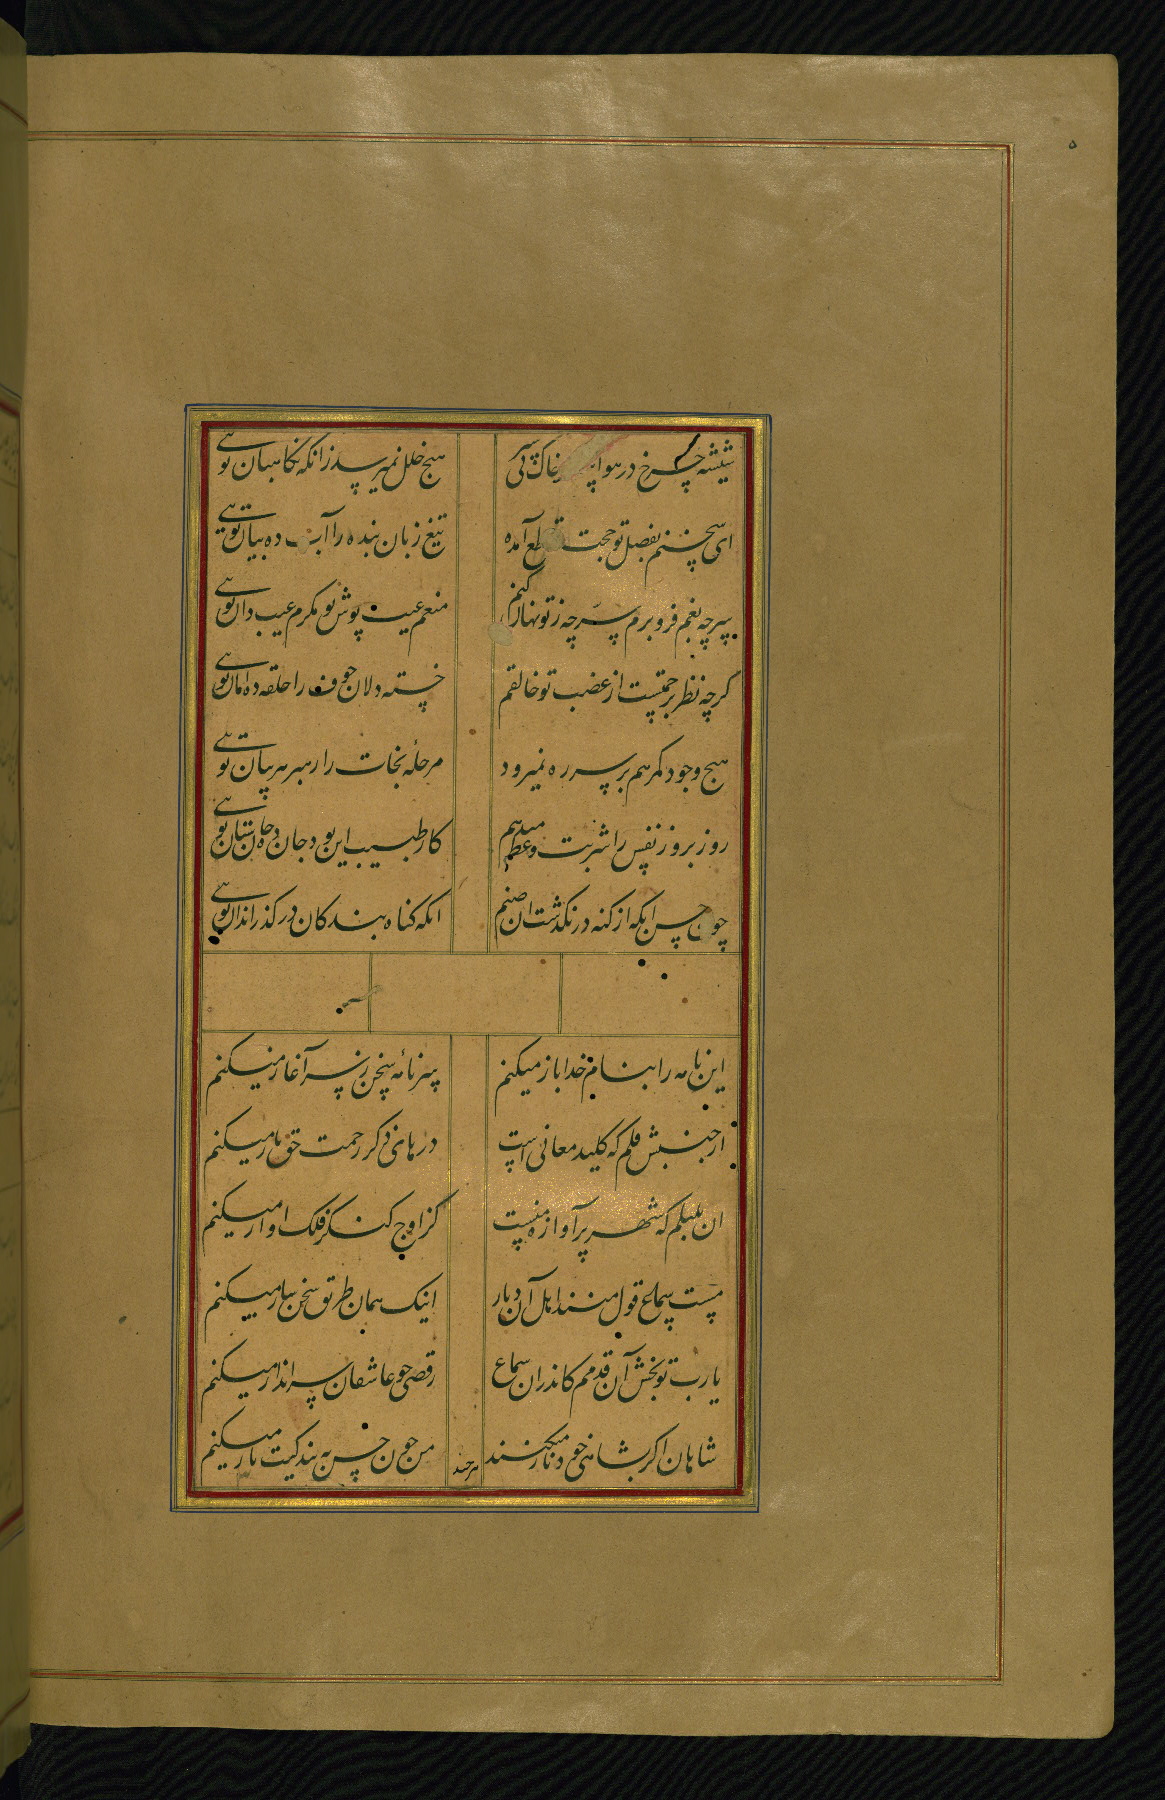 ۵
شیشه چرخ در هوا خاک کی هیچ خلل نمیرسد زانکه نگاهبان تویی
ای سخنم بفضل تو حجت قاطع آمده تیغ زبان بنده را آب ده بیان تویی
هر چه بغم فرو برم هر چه ز تو نهان کنم منعم عیب پوش تو مکرم عیب دان تویی
گرچه نظر برحمتست از غضب تو خالقم خسته دلان خوف را حلقه ده امان تویی
هیچ وجود گمرهم بر سر ره نمیرود مرحلهٔ نجات را رهبر تویی
روز بروز نفس را شربت وعظ میدهم کار طبیب این بود جان ده و جان ستان تویی
چون حسن انکه از کنه در نکذشت ان صنم انکه کناه بندکان در کذراندان تویی
این نامه را بنام خدا باز میکنم سرنامهٔ سخن ز سر آغاز میکنم
از جنبش قلم که کلید معانی است درهای ذکر رحمت حق باز میکنم
ان بلبلم که شهر پر آوازه منست کز اوج کنگر فلک اواز میکنم
مست سماع قول منند اهل آن دیار اینک همان طریق سخن ساز میکنم
یارب تو بخش آن قدمم کاندران سماع رقصی چو عاشقان سرانداز میکنم
شاهان اکر بشاهی خود ناز میکنند من چون حسن به بندکیت ناز میکنم
هر چند